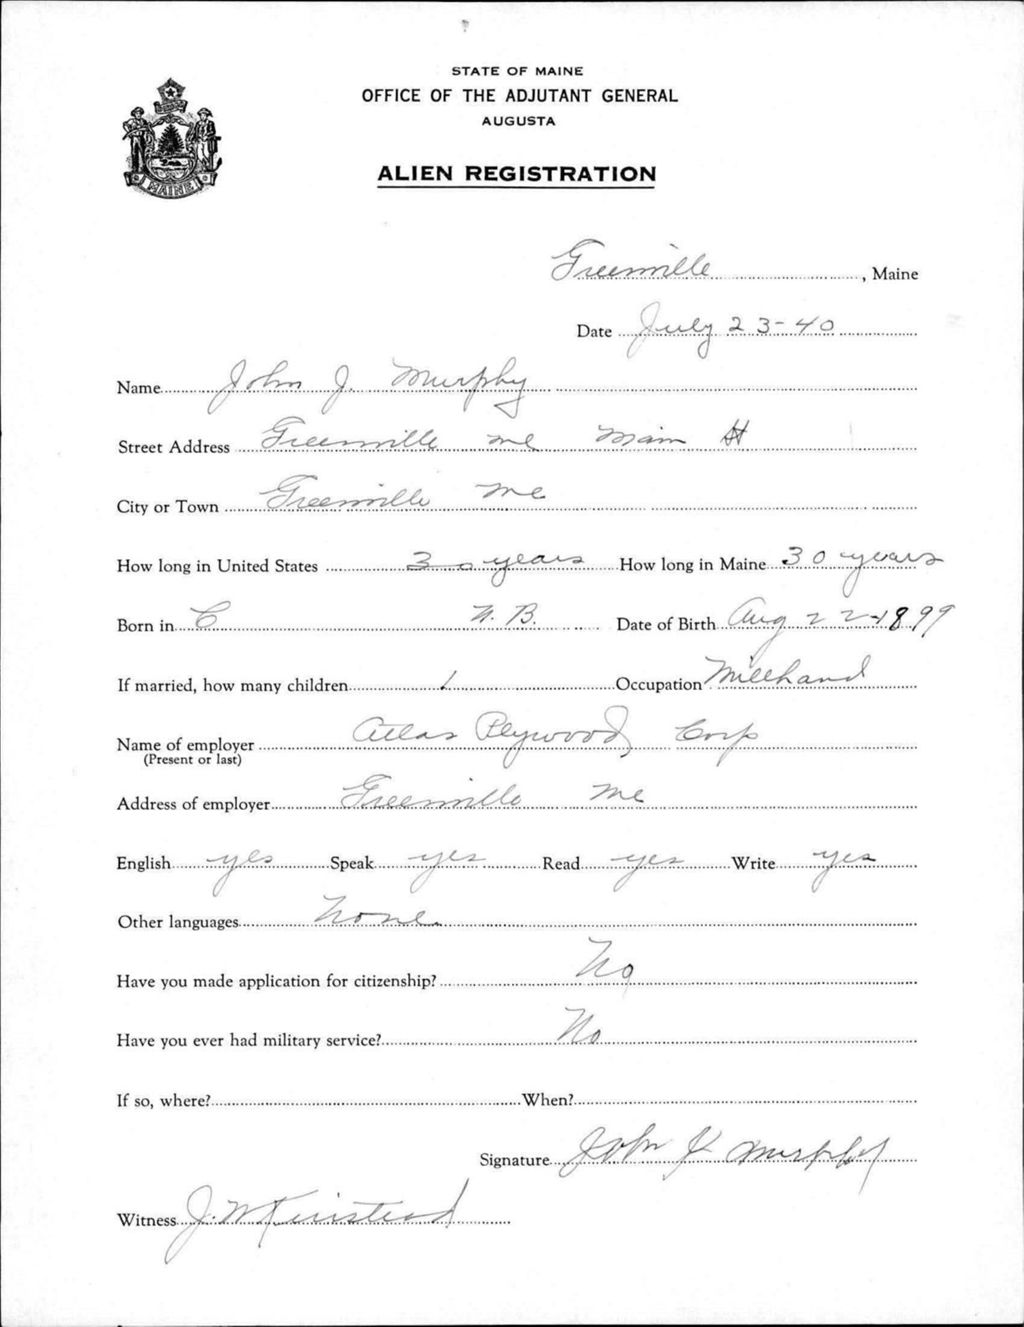 STATE OF MAINE
OFFICE OF THE ADJUTANT GENERAL
AUGUSTA
MAINE
ALIEN REGISTRATION
Greenville, Maine
Date July 23-40
Name John J. Murphy
Street Address Greenville Me Main St
City or Town Greenville Me
How long in United States 30 years How long in Maine 30 years
Born in C N. B. Date of Birth Aug 22-1899
If married, how many children 1 Occupation Millhand
Name of employer Atlas Plywood Corp
(Present or last)
Address of employer Greenville Me
English yes Speak yes Read yes Write yes
Other languages None
Have you made application for citizenship? No
Have you ever had military service? No
If so, where? When?
Signature John J Murphy
Witness J.